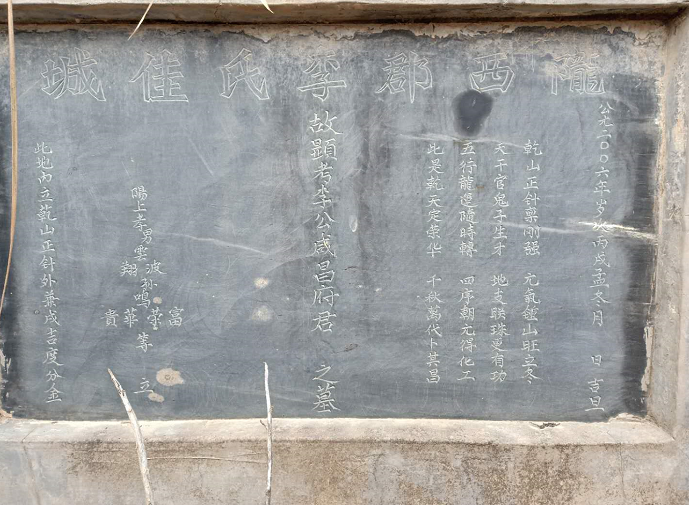 隴西郡李氏佳城
公元二〇〇六年岁次丙戌孟冬月 日 吉旦
乾山正針禀刚强 元氣鍾山旺立冬
天干官鬼子生才 地支联珠更有功
五行龍運隨時轉 四序朝元得化工
此是乾天定荣华 千秋萬代卜其昌
故顯考李公咸昌府君 之墓
陽上孝男雲波
翔
孙鳴
富
荣
華
貴
等 立
此地內立乾山正針外兼戌吉度分金